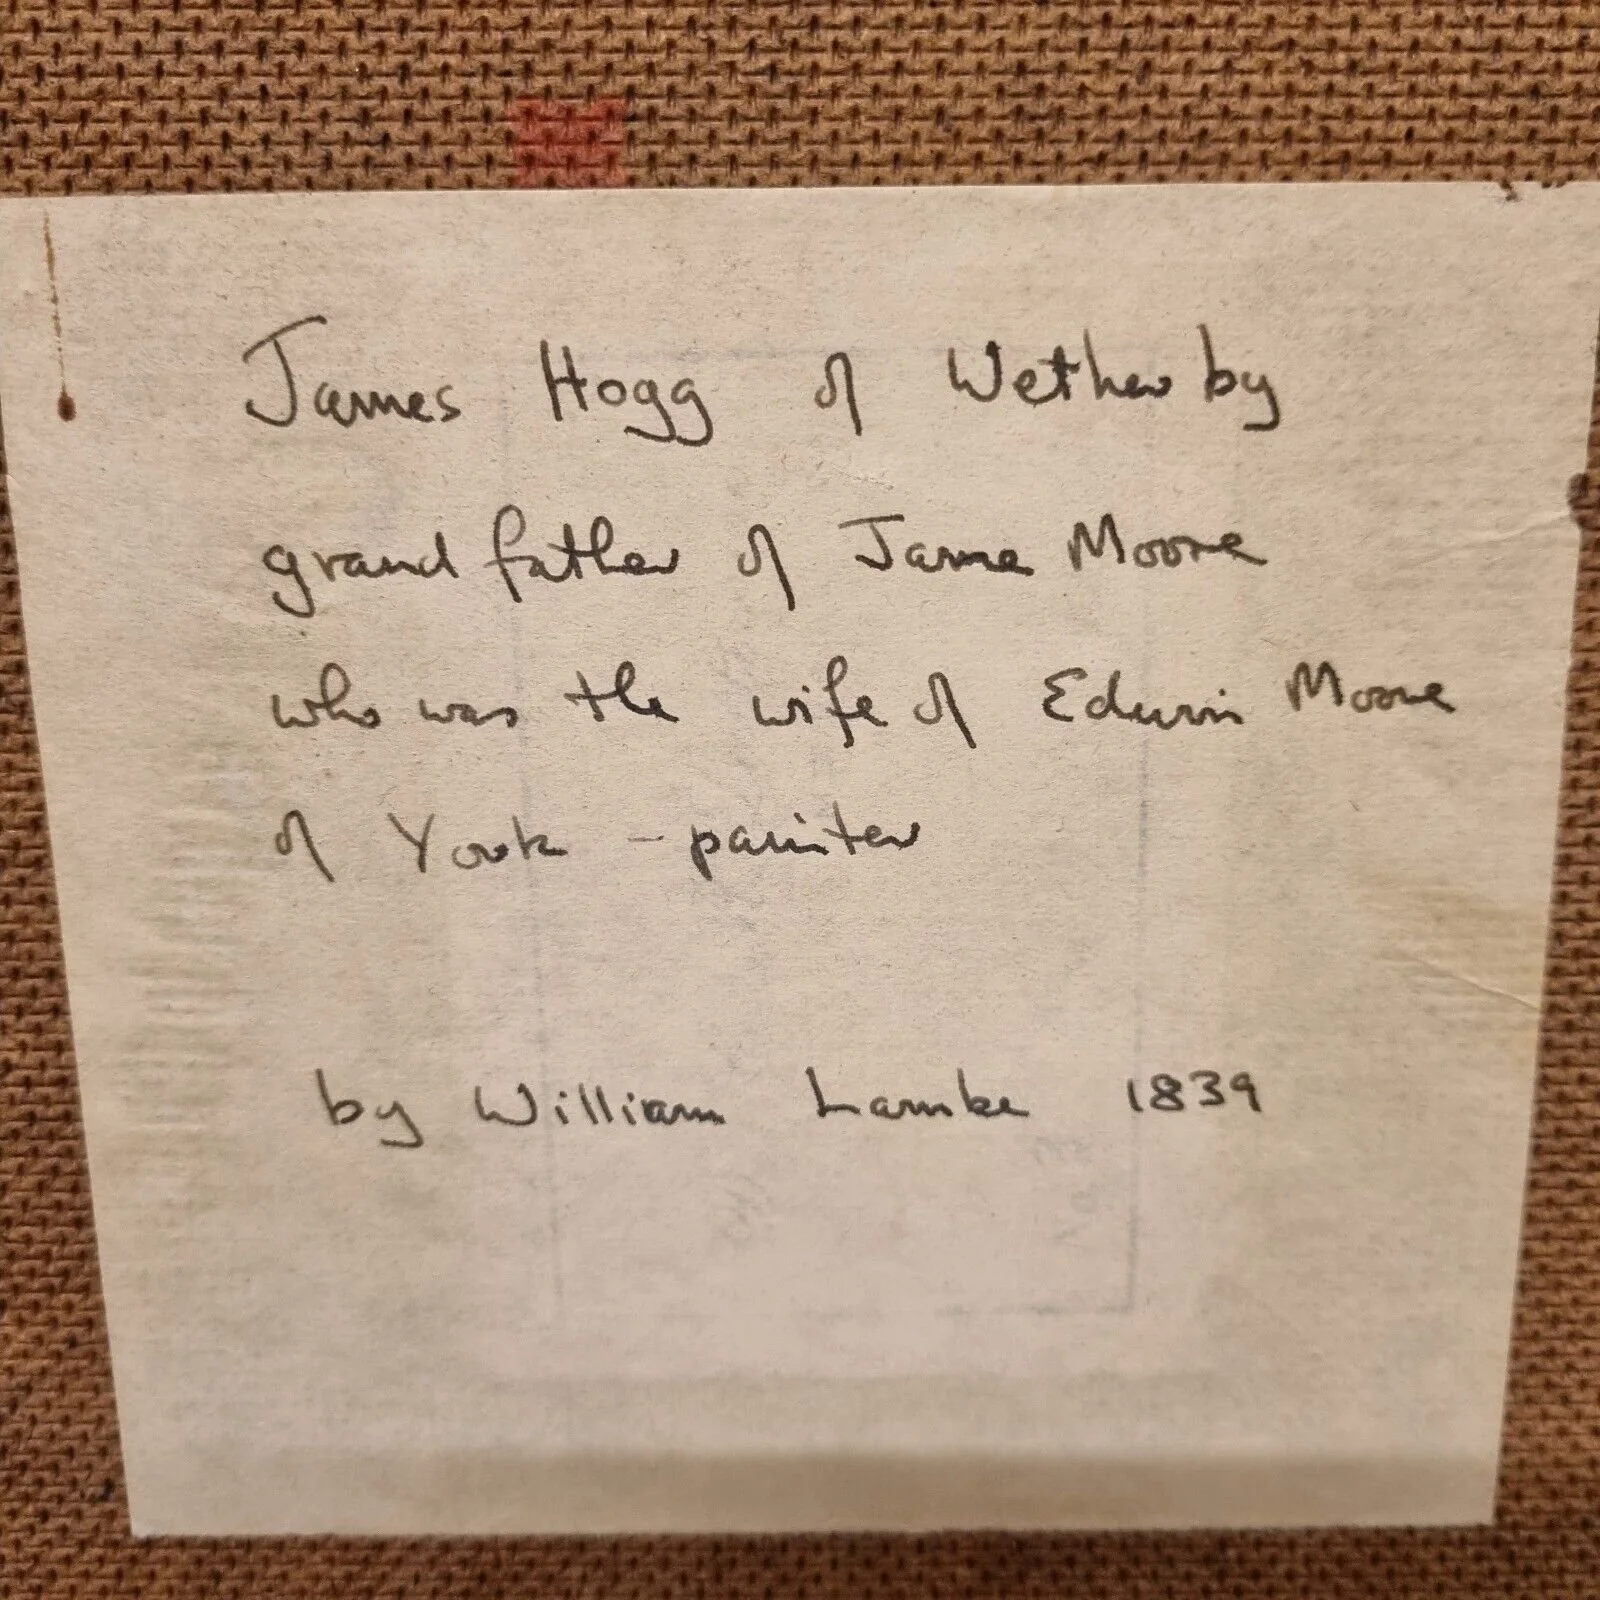 James Hogg of Wetherby
grandfather of Jane Moore
who was the wife of Edwin Moore
of York - painter
by William Lambe 1839